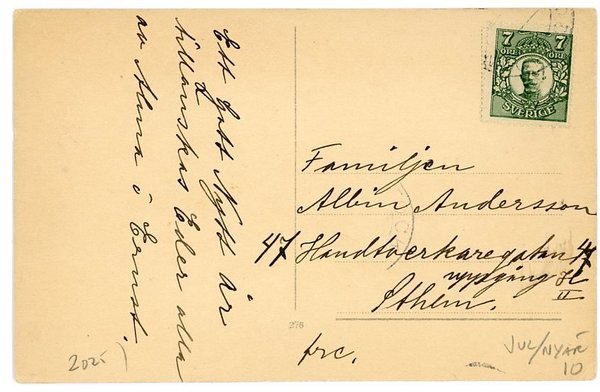 Ett Gott Nytt år
tillönskas Eder alla
av Alma o Ernst.
7 7
ÖRE ÖRE
SVERIGE
Familjen
Albin Andersson
47 Handtverkaregatan 47
uppgång H
II
Sthlm.
276
frc.
2025)
JUL/NYÅR
10